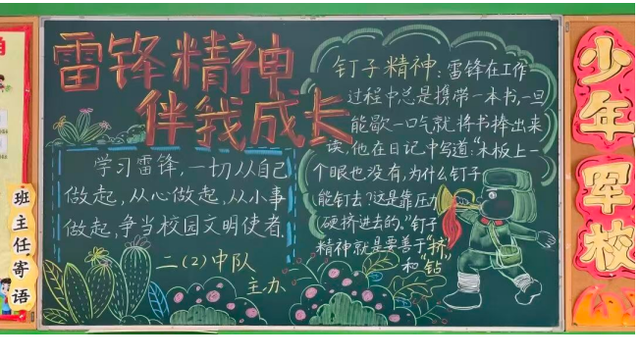 雷锋精神
伴我成长
学习雷锋，一切从自己
做起，从心做起，从小事
做起，争当校园文明使者.
二（2）中队
主办
钉子精神：雷锋在工作
过程中总是携带一本书，一旦
能歇一口气就将书捧出来
读，他在日记中写道：“木板上一
个眼也没有，为什么钉子
能钉去？这是靠压力
硬挤进去的。”钉子
精神就是要善于“挤”
和“钻
班主任寄语
少年军校